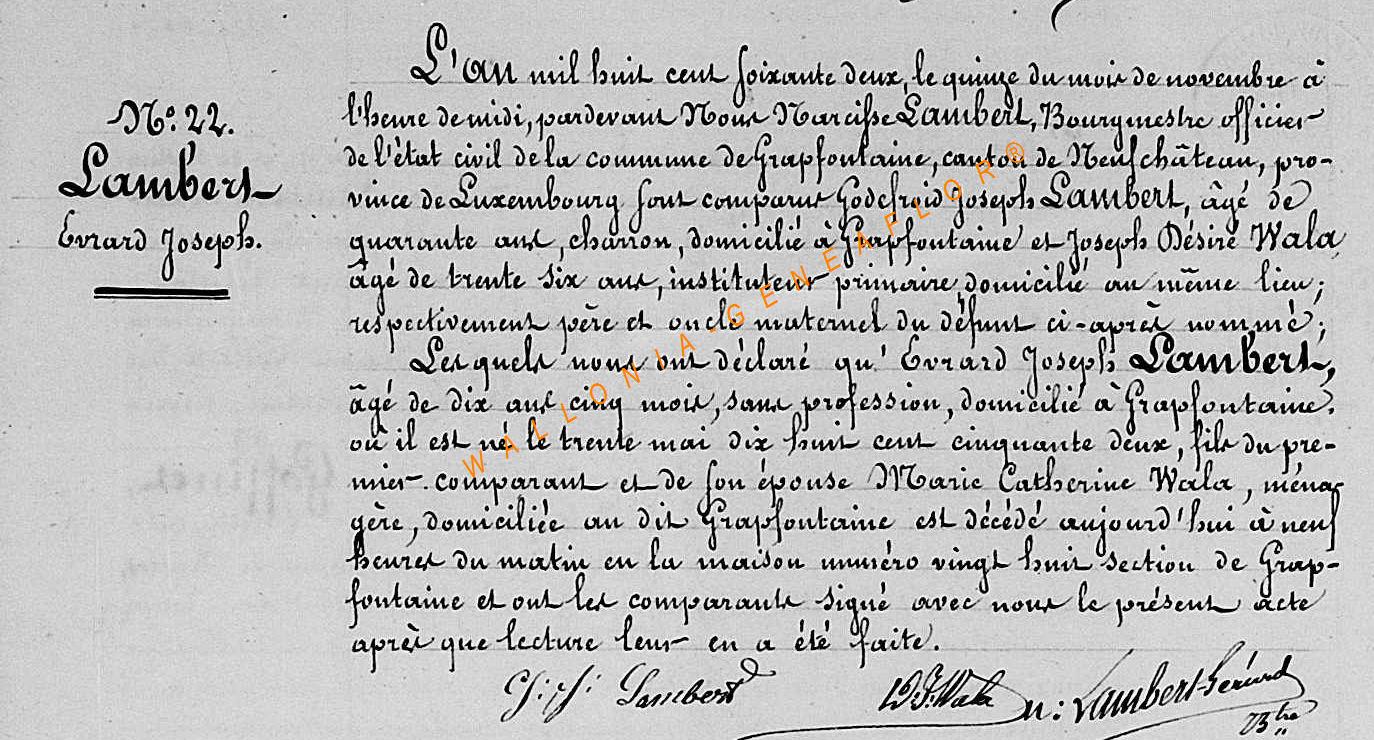 L'an mil huit cent soixante deux, le quinze du mois de novembre à
N.º 22.
l'heure de midi, pardevant Nous Narcisse Lambert, Bourgmestre officier
de l'état civil de la commune de Grapfontaine, canton de Neufchâteau, pro-
Lambert
vince de Luxembourg sont comparus Godefroid Joseph Lambert, âgé de
Evrard Joseph.
quarante ans, charron, domicilié à Grapfontaine et Joseph Désiré Wala
âgé de trente six ans, instituteur primaire domicilié au même lieu;
respectivement père et oncle maternel du défunt ci-après nommé;
Les quels nous ont déclaré qu' Evrard Joseph Lambert,
âgé de dix ans cinq mois, sans profession, domicilié à Grapfontaine.
où il est né le trente mai dix huit cent cinquante deux, fils du pre-
mier comparant et de son épouse Marie Catherine Wala, ména
gère, domiciliée au dit Grapfontaine est décédé aujourd'hui à neuf
heures du matin en la maison numéro vingt huit section de Grap-
fontaine et ont les comparants signé avec nous le présent acte
après que lecture leur en a été faite.
WALLONIA-GENEAFLOR®
Lambert
Wala
n: Lambert-Gérard